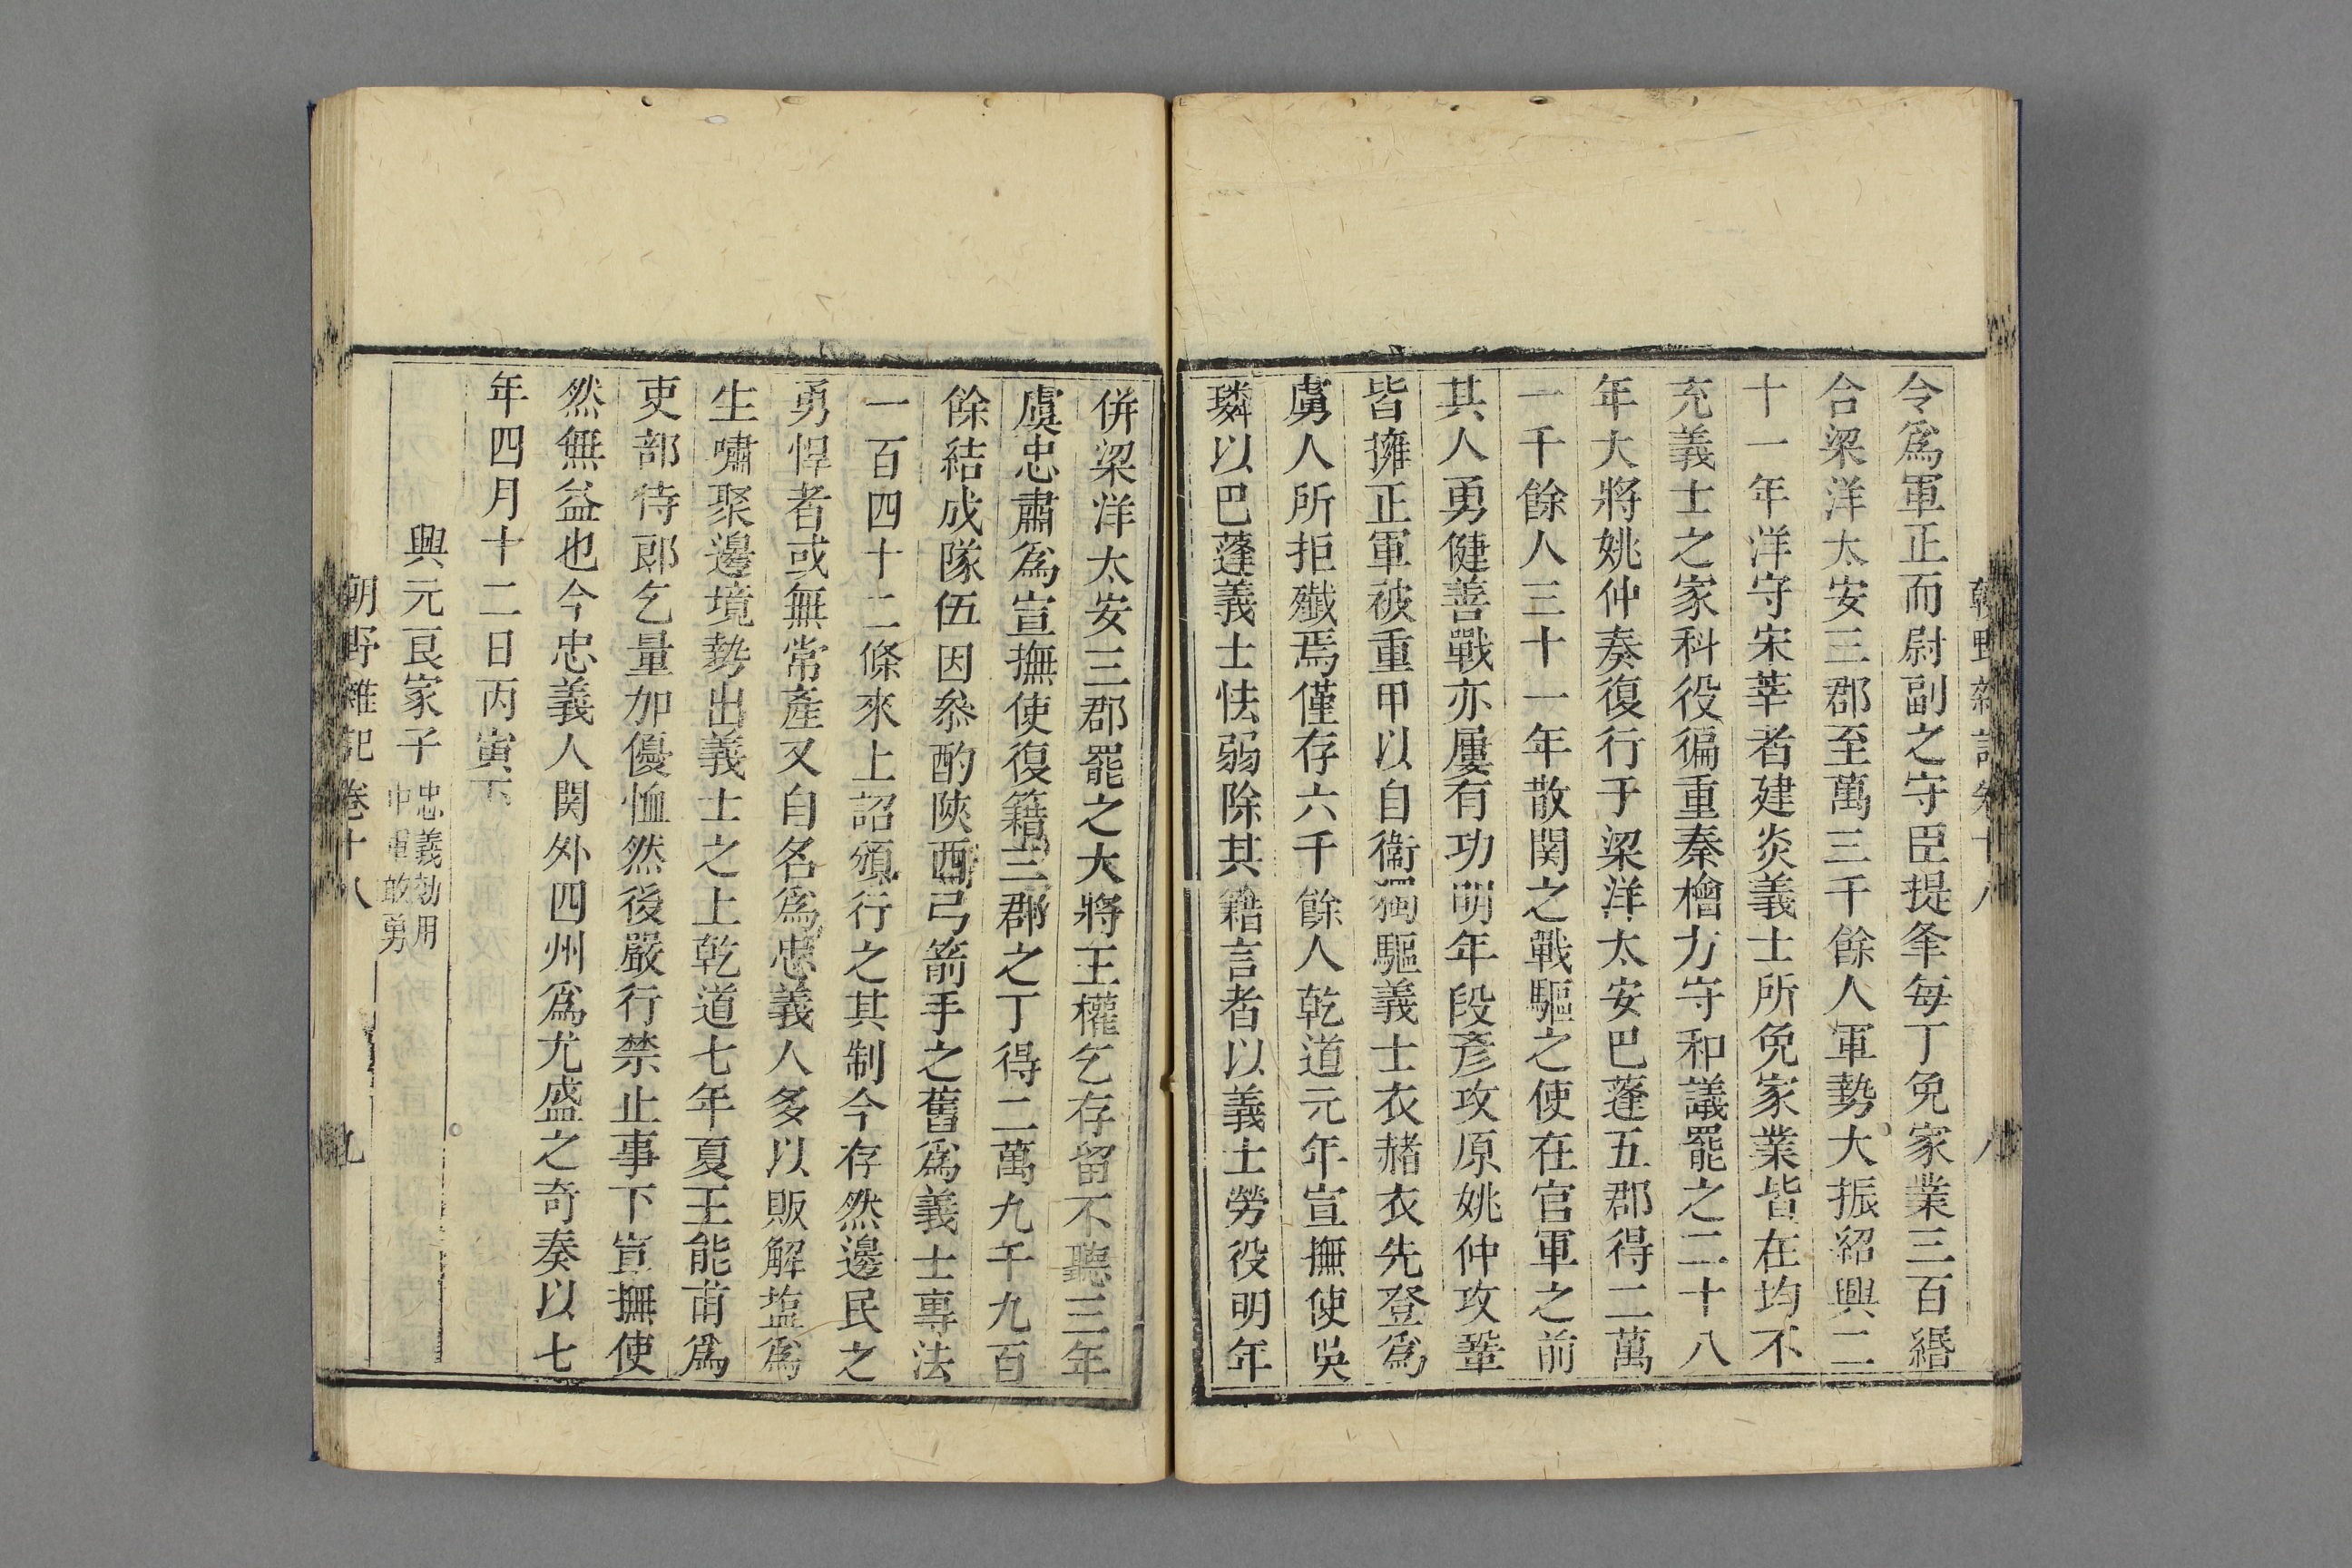 朝野雜記卷十八 八
令爲軍正而尉副之守臣提夆每丁免家業三百緡
合梁洋太安三郡至萬三千餘人軍勢大振紹興二
十一年洋守宋莘者建炎義士所免家業皆在均不
充義士之家科役徧重秦檜力守和議罷之二十八
年大將姚仲奏復行于梁洋太安巴蓬五郡得二萬
一千餘人三十一年散関之戰驅之使在官軍之前
其人勇健善戰亦屢有功明年段彥攻原姚仲攻鞏
皆擁正軍被重甲以自衞獨驅義士衣赭衣先登爲
虜人所拒殲焉僅存六千餘人乾道元年宣撫使吳
璘以巴蓬義士怯弱除其籍言者以義士勞役明年
併梁洋太安三郡罷之大將王權乞存留不聽三年
虞忠肅爲宣撫使復籍三郡之丁得二萬九千九百
餘結成隊伍因叅酌陝西弓箭手之舊爲義士專法
一百四十二條來上詔頒行之其制今存然邊民之
勇悍者或無常產又自名爲忠義人多以販解塩爲
生嘯聚邊境勢出義士之上乾道七年夏王能甫爲
吏部侍郎乞量加優恤然後嚴行禁止事下宣撫使
然無益也今忠義人関外四州爲尤盛之奇奏以七
年四月十二日丙寅下
興元良家子 忠義効用
中軍敢勇
朝野雜記卷十八 九